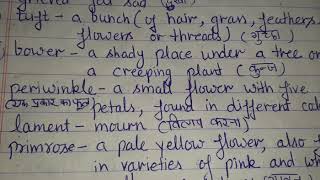 grieved - felt sad (दुखी)
tuft - a bunch (of hair, grass, feathers
flowers or threads)
bower - a shady place under a tree or
a creeping plant (कुन्ज)
periwinkle - a small flower with five
(एक प्रकार का फूल) petals, found in different col
lament - mourn (विलाप करना)
primrose - a pale yellow flower, also f
in varieties of pink and wh